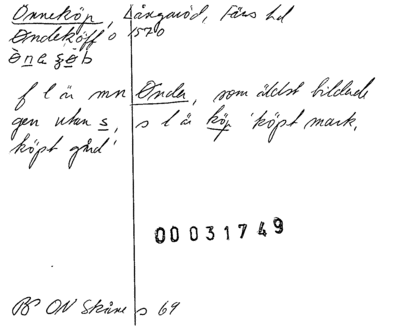 Onneköp, Långaröd, Färs hd
Ondeköff o 1570
ò̀n a ʂ ö̀ b
f l är mn Onde, som äldst bildade
gen utan s, s l är köp 'köpt mark,
köpt gård'
00031749
BE ON Skåne s 69